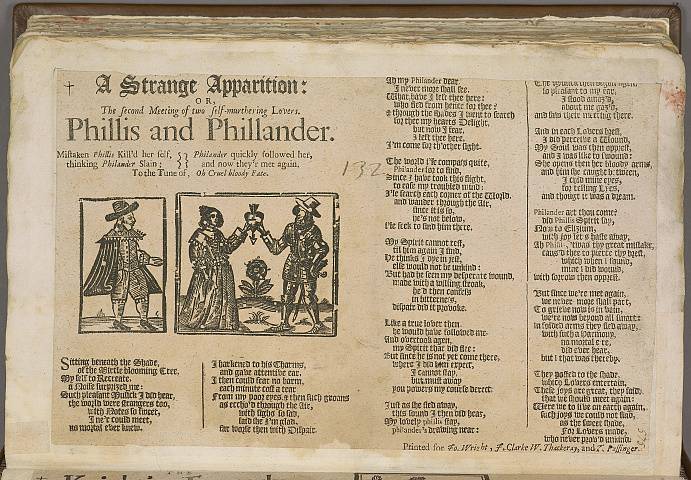 A Strange Apparition:
OR,
The second Meeting of two self-murthering Lovers.
Phillis and Phillander.
Mistaken Phillis Kill'd her self,
thinking Philander Slain;
Philander quickly followed her,
and now they're met again.
To the Tune of, Oh Cruel bloody Fate.
132
Sitting beneath the Shade,
of the Mirtle blooming Tree,
My self to Recreate,
a Noise surprized me:
Such pleasant Musick I did hear,
the world were strangers too,
with Notes so sweet,
I ne'r could meet,
no mortal ever knew.
I harkened to his Charms,
and gave attentive ear,
I then could fear no harm,
each minute cost a tear
From my poor eyes, & then such groans
as eccho'd through the Air,
with sighs so sad,
said she I'm glad,
far worse then with Dispair.
Ah my Philander dear,
I never more shall see,
What, have I left thee here:
who fled from hence for thee?
& through the shades I went to search
for thee my hearts Delight,
but now I fear,
I left thee here,
I'm come for th'other sight.
The world I'le compass quite,
Philander for to find,
Since I have took this flight,
to ease my troubled mind:
I'le search each corner of the World,
and wander through the Air,
since it is so,
he's not below,
I'le seek to find him there.
My Spirit cannot rest,
til him again I find,
He thinks I dye in jest,
else would not be unkind:
But had he seen my desperate wound,
made with a willing stroak,
he'd then confess
in bitterness,
dispair did it provoke.
Like a true lover then
he would have followed me,
And overtook again,
my Spirit that did flee:
But since he is not yet come there,
where I did him expect,
I cannot stay,
but must away
you powers my course direct:
Just as she fled away,
this sound I then did hear,
My lovely phillis stay,
philander's drawing near:
so pleasant to my ear,
I stood amaz'd,
about me gaz'd,
and saw their meeting there.
And in each Lovers brest,
I did perceive a Wound,
My Soul was then opprest,
and I was like to swound:
She opens then her bloody arms,
and him she caught between,
I cryd mine eyes,
for telling Lyes,
and thought it was a dream.
Philander art thou come?
did Phillis Spirit say,
Now to Elizium,
with joy let's haste away;
'twas thy great mistake,
caus'd thee to pierce thy brest,
which when I found,
mine I did wound,
with sorrow then opprest.
But since we're met again,
we never more shall part,
To grieve now is in vain,
we're now beyond all smart:
in folded arms they fled away,
with such a harmony,
no mortal e're,
did ever hear,
but I that was thereby.
They posted to the shade,
which Lovers entertain,
These joys are great, they said,
that we should meet again:
Were we to live on earth again,
such joys we could not find,
as the sweet shade,
For Lovers made,
who never prov'd unkind.
Printed for Jo. Wright, J. Clarke W. Thackeray, and T. Passinger.